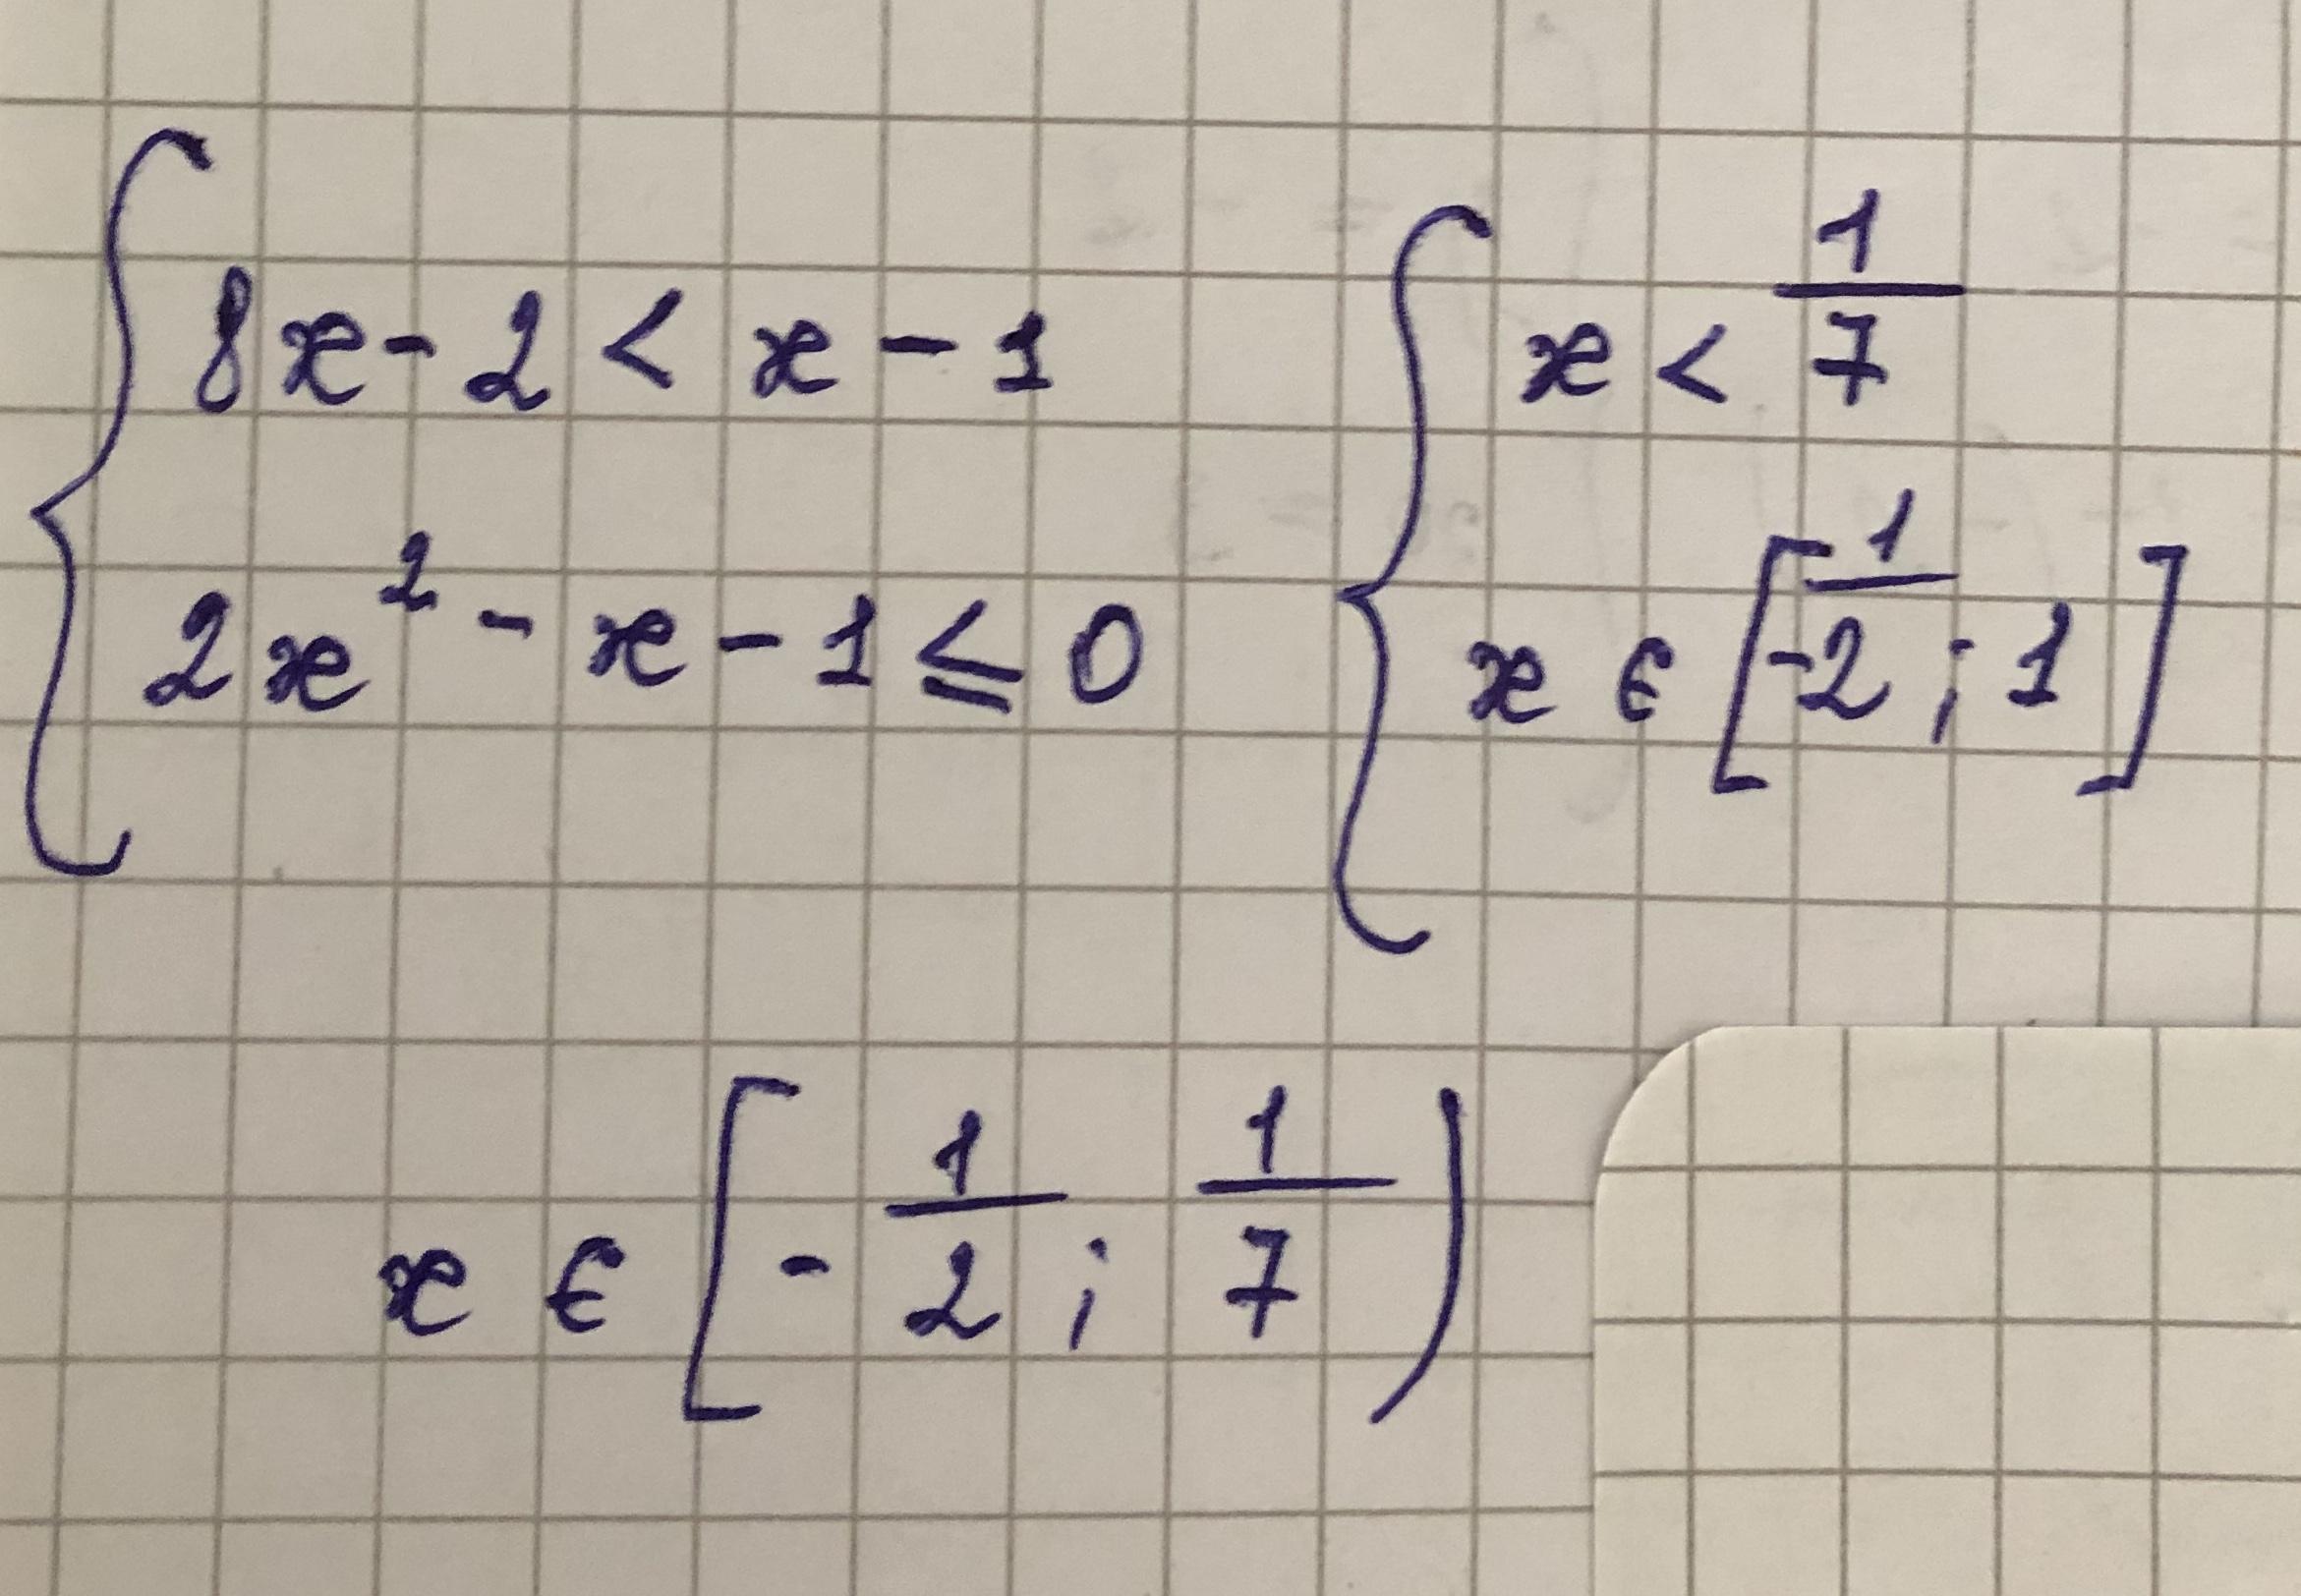 { 8x - 2 < x - 1
2x² - x - 1 ≤ 0
{ x < 1/7
x ∈ [1/-2 ; 1]
x ∈ [- 1/2 ; 1/7)